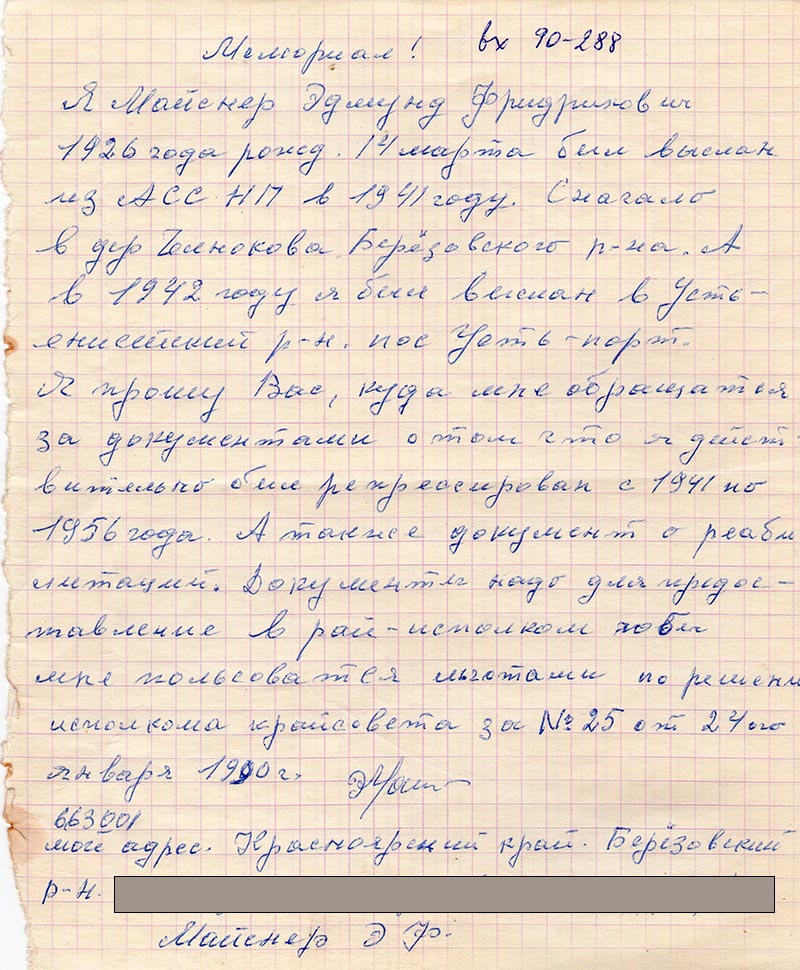 Мемориал! вх 90-288
Я Майснер Эдмунд Фридрихович
1926 года рожд. 14 марта был выслан
из АССНП в 1941 году. Сначало
в дер Челнокова Берёзовского р-на. А
в 1942 году я был выслан в Усть-
енисейский р-н. пос Усть-порт.
Я прошу Вас, куда мне обращатся
за документами о том что я дейст-
вительно был репрессирован с 1941 по
1956 года. А также документ о реаби
литаций. Документы надо для предос-
тавление в рай-исполком чобы
мне пользоватся льготами по решени
исполкома крайсовета за № 25 от 24ого
января 1990 г.
663001
мой адрес. Красноярский край. Берёзовский
р-н.
Майснер Э Ф.